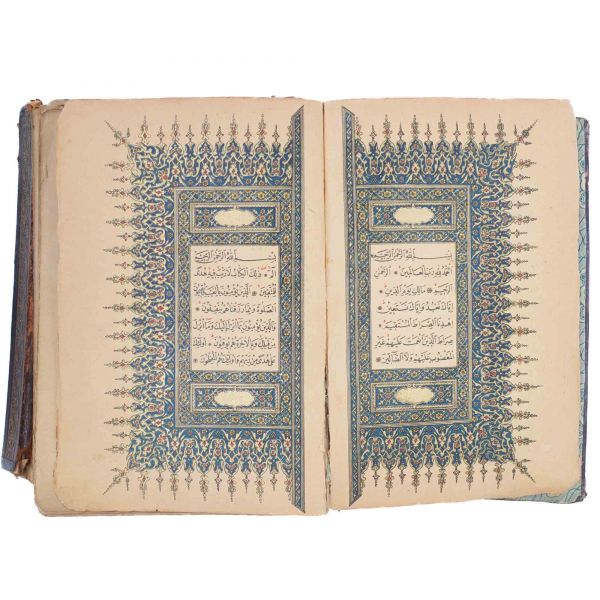 بِسْمِ اللّٰهِ الرَّحْمٰنِ الرَّحِيمِ
اَلْحَمْدُ لِلّٰهِ رَبِّ الْعَالَمِينَ ۞ اَلرَّحْمٰنِ
الرَّحِيمِ ۞ مَالِكِ يَوْمِ الدِّينِ ۞
اِيَّاكَ نَعْبُدُ وَاِيَّاكَ نَسْتَعِينُ ۞
اِهْدِنَا الصِّرَاطَ الْمُسْتَقِيمَ ۞
صِرَاطَ الَّذِينَ اَنْعَمْتَ عَلَيْهِمْ غَيْرِ
الْمَغْضُوبِ عَلَيْهِمْ وَلَا الضَّالِّينَ ۞
بِسْمِ اللّٰهِ الرَّحْمٰنِ الرَّحِيمِ
الٓمٓ ۞ ذٰلِكَ الْكِتَابُ لَا رَيْبَ فِيهِ هُدًى
لِلْمُتَّقِينَ ۞ اَلَّذِينَ يُؤْمِنُونَ بِالْغَيْبِ وَيُقِيمُونَ
الصَّلٰوةَ وَمِمَّا رَزَقْنَاهُمْ يُنْفِقُونَ ۞
وَالَّذِينَ يُؤْمِنُونَ بِمَا اُنْزِلَ اِلَيْكَ وَمَا اُنْزِلَ
مِنْ قَبْلِكَ وَبِالْاٰخِرَةِ هُمْ يُوقِنُونَ ۞ اُولٰئِكَ
عَلٰى هُدًى مِنْ رَبِّهِمْ وَاُولٰئِكَ هُمُ الْمُفْلِحُونَ ۞